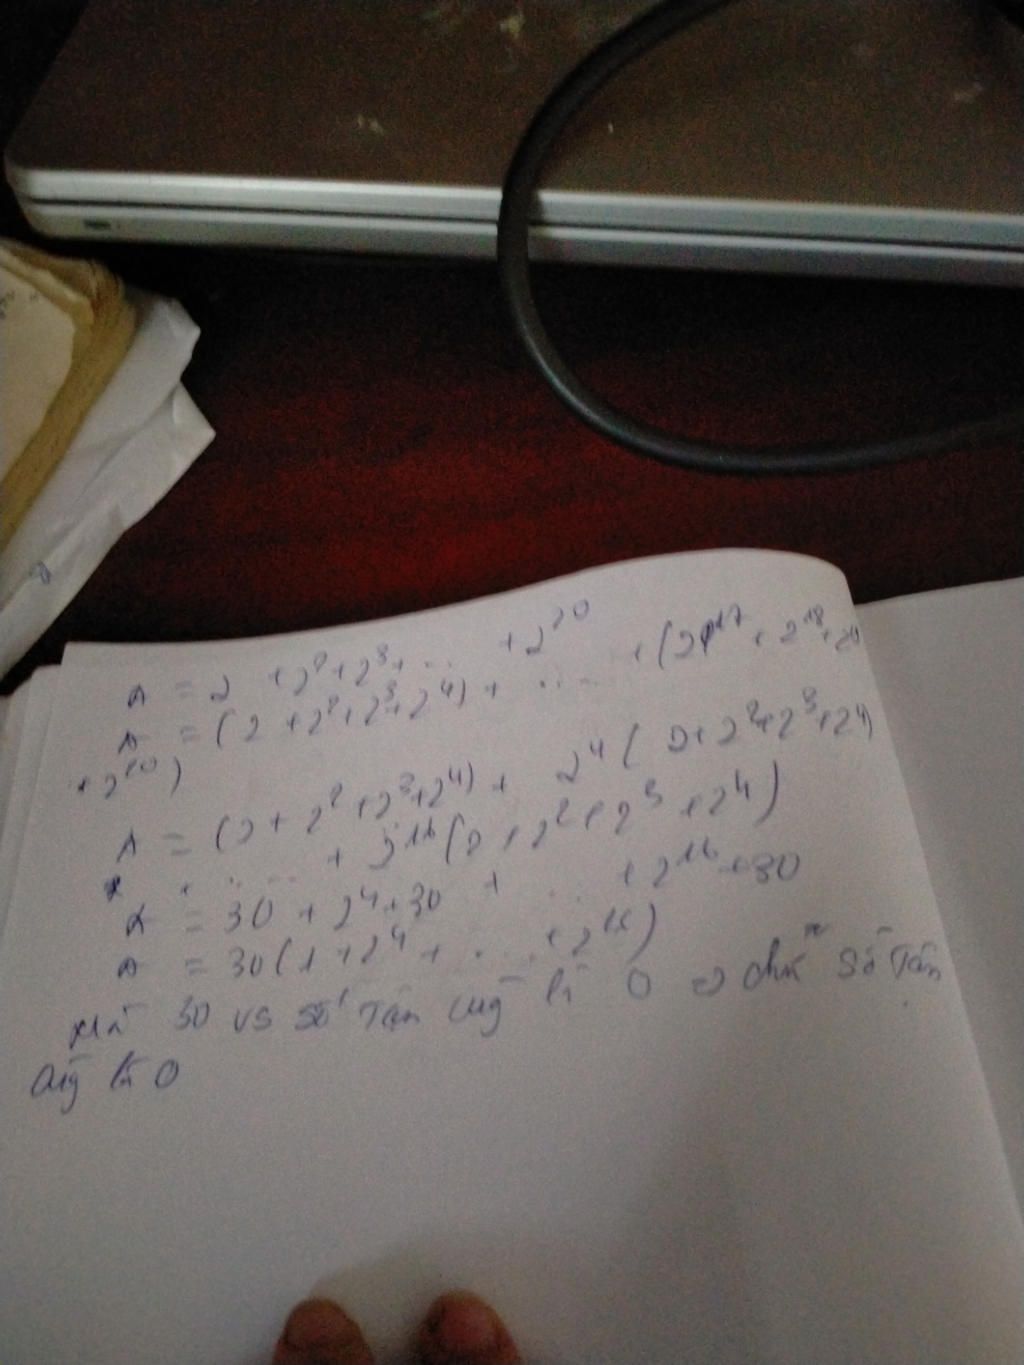 A = 2 + 2² + 2³ + ... + 2²⁰
A = (2 + 2² + 2³ + 2⁴) + ..... + (2¹⁷ + 2¹⁸ + 2¹⁹
+ 2²⁰)
A = (2 + 2² + 2³ + 2⁴) + 2⁴ (2 + 2² + 2³ + 2⁴)
+ ..... + 2¹⁶ (2 + 2² + 2³ + 2⁴)
A = 30 + 2⁴ + 30 + ... + 2¹⁶ + 30
A = 30 (1 + 2⁴ + .... + 2¹⁶)
Mà 30 số tận cùg là 0 => chữ số tận
cùg là 0